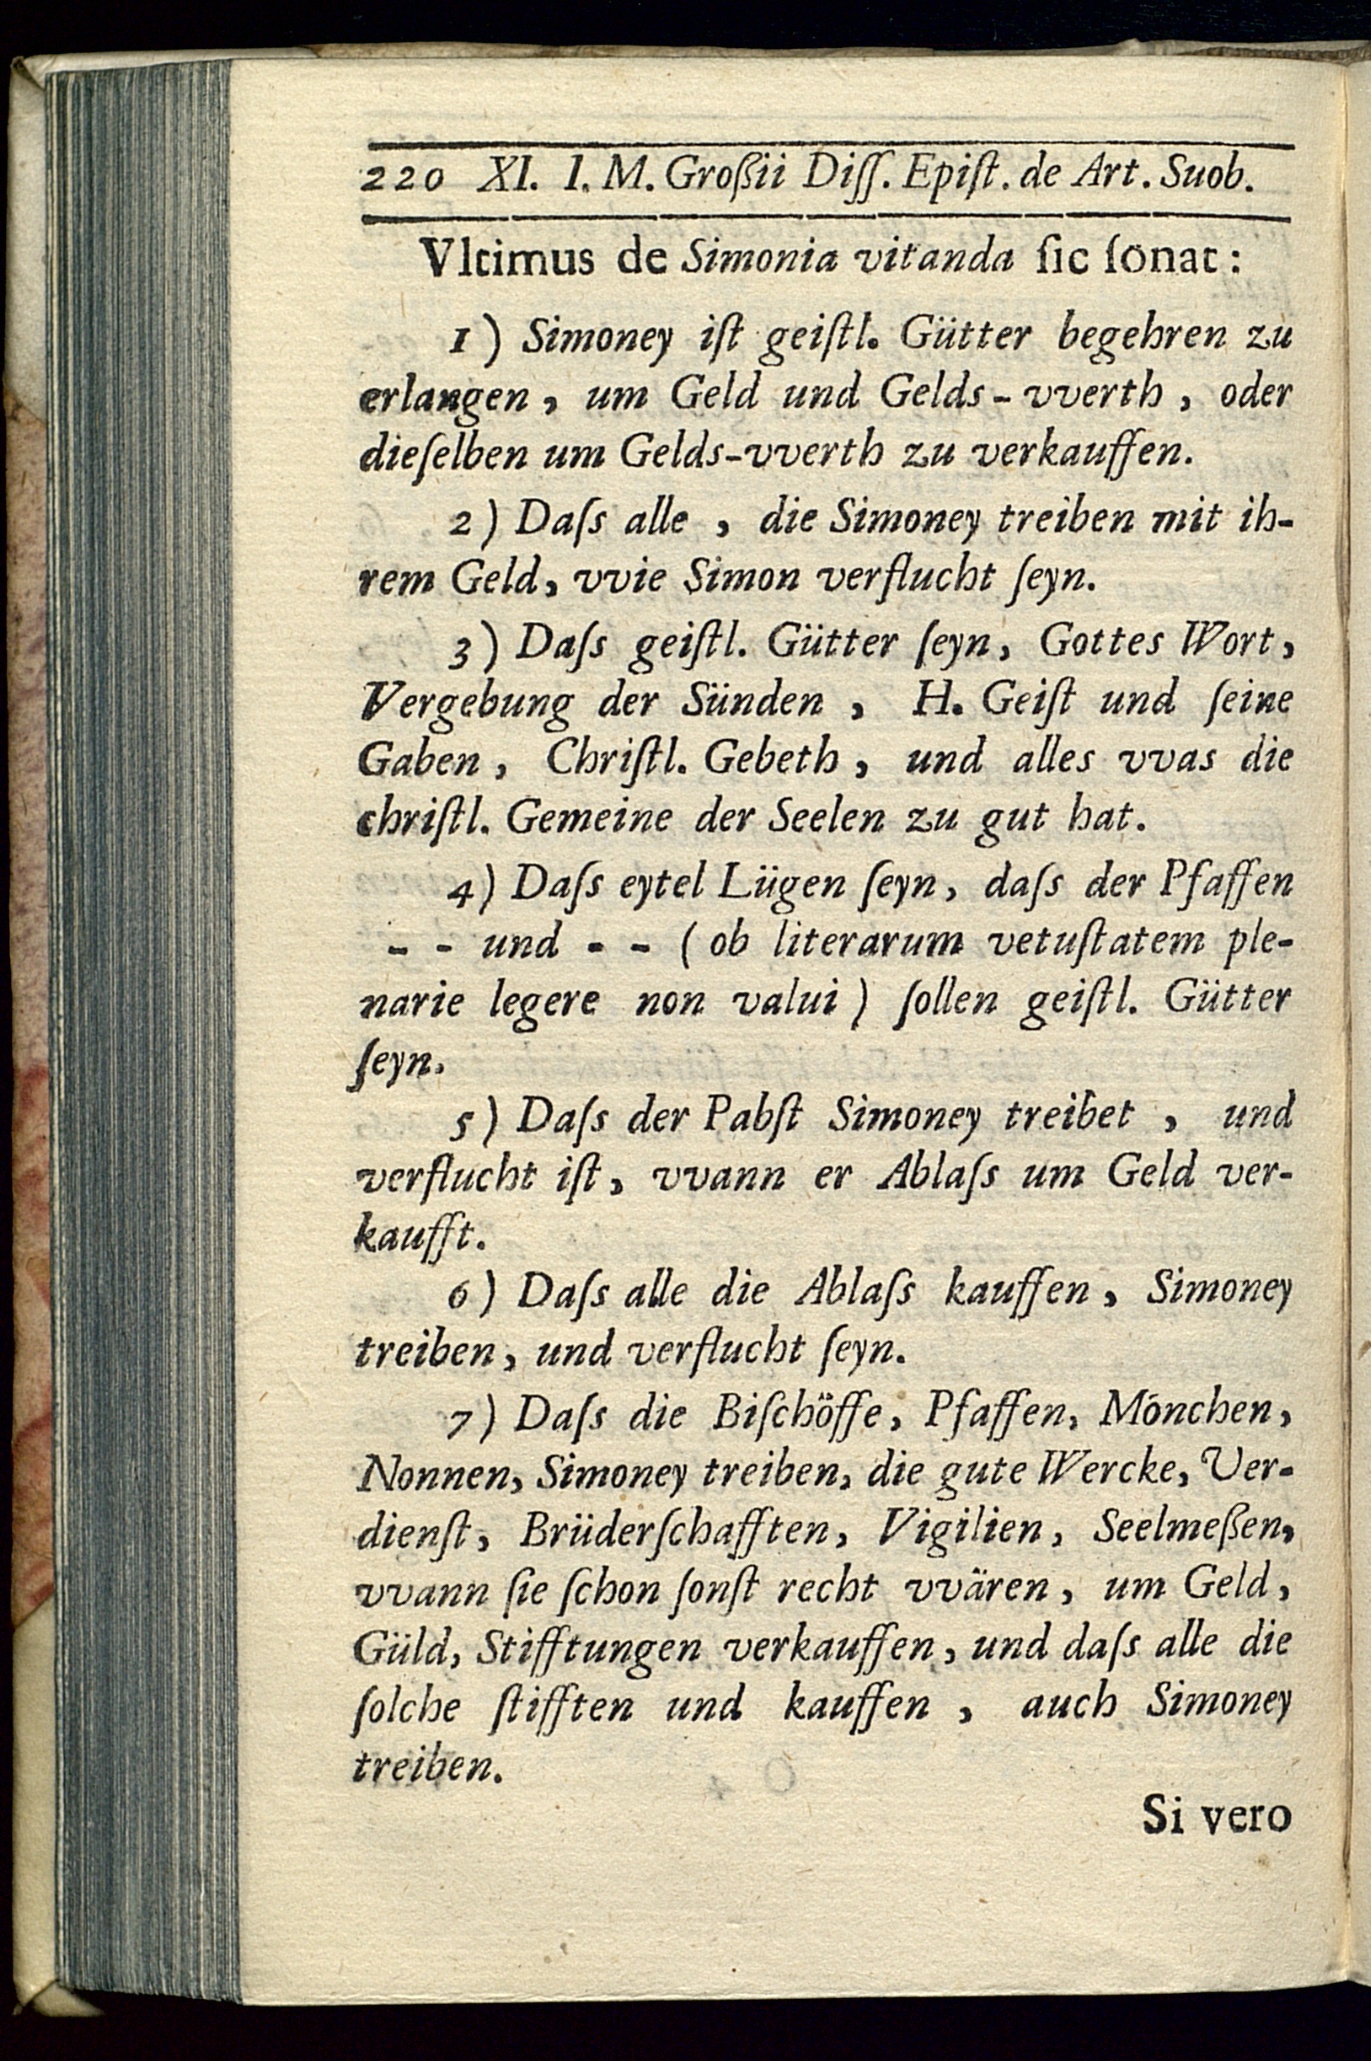 220 XI. I. M. Großii Diſſ. Epiſt. de Art. Suob.
Vltimus de Simonia vitanda ſic ſonat:
1) Simoney iſt geiſtl. Gütter begehren zu
erlangen, um Geld und Gelds-vverth, oder
dieſelben um Gelds-vverth zu verkauffen.
2) Daſs alle, die Simoney treiben mit ih-
rem Geld, vvie Simon verflucht ſeyn.
3) Daſs geiſtl. Gütter ſeyn, Gottes Wort,
Vergebung der Sünden, H. Geiſt und ſeine
Gaben, Chriſtl. Gebeth, und alles vvas die
chriſtl. Gemeine der Seelen zu gut hat.
4) Daſs eytel Lügen ſeyn, daſs der Pfaffen
- - und - - (ob literarum vetuſtatem ple-
narie legere non valui) ſollen geiſtl. Gütter
ſeyn.
5) Daſs der Pabſt Simoney treibet, und
verflucht iſt, vvann er Ablaſs um Geld ver-
kaufft.
6) Daſs alle die Ablaſs kauffen, Simoney
treiben, und verflucht ſeyn.
7) Daſs die Biſchöffe, Pfaffen, Mönchen,
Nonnen, Simoney treiben, die gute Wercke, Ver-
dienſt, Brüderſchafften, Vigilien, Seelmeßen,
vvann ſie ſchon ſonſt recht vvären, um Geld,
Güld, Stifftungen verkauffen, und daſs alle die
ſolche ſtifften und kauffen, auch Simoney
treiben.
Si vero